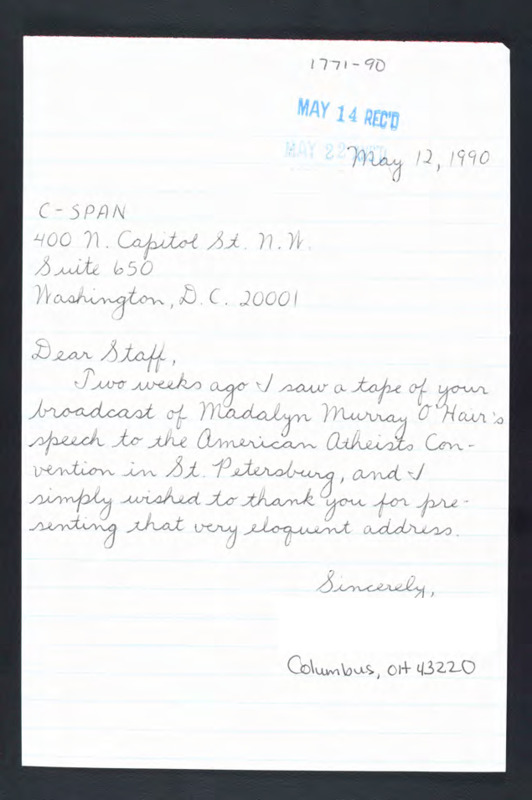 1771-90
MAY 14 REC'D
MAY 22 REC'D
May 12, 1990
C-SPAN
400 N. Capitol St. N.W.
Suite 650
Washington, D.C. 20001
Dear Staff,
Two weeks ago I saw a tape of your
broadcast of Madalyn Murray O'Hair's
speech to the American Atheists Con-
vention in St. Petersburg, and I
simply wished to thank you for pre-
senting that very eloquent address.
Sincerely,
Columbus, OH 43220